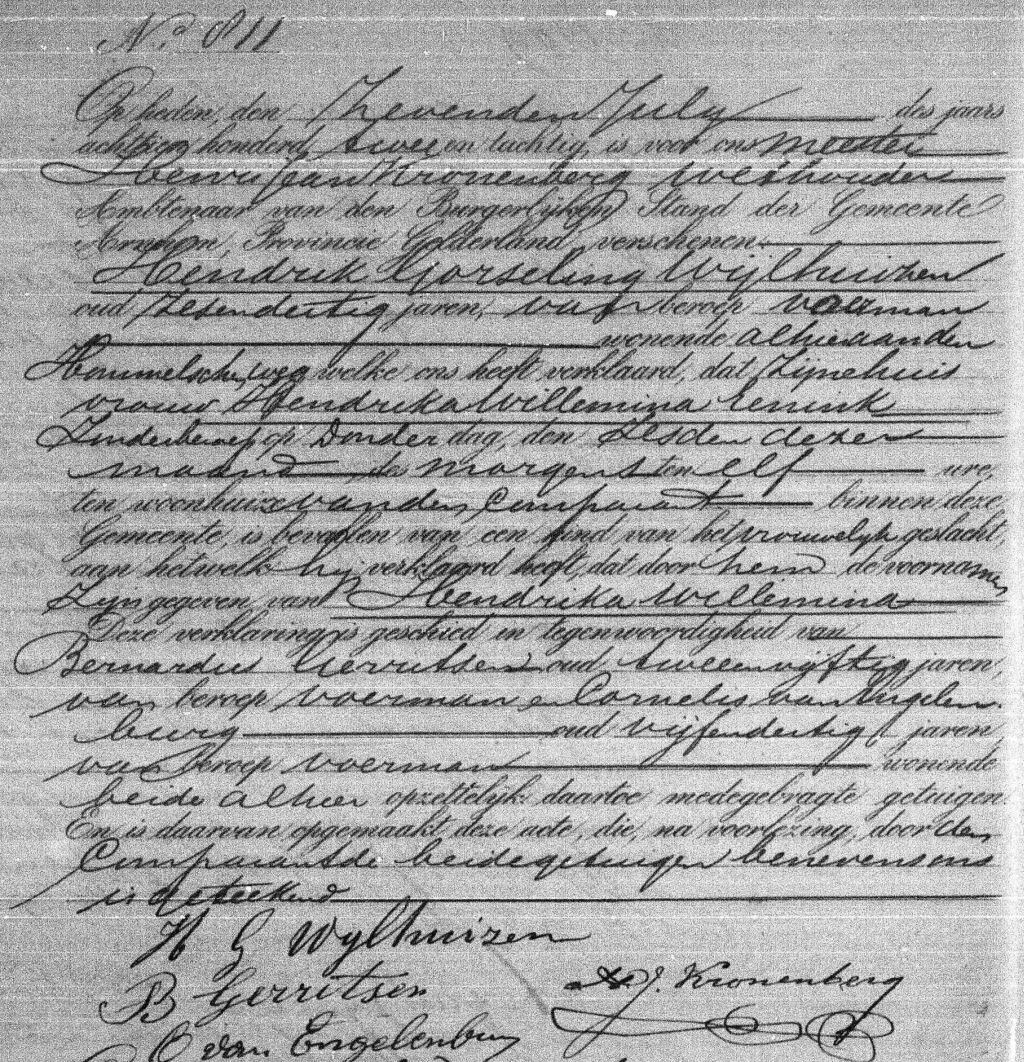 No. 811
Op heden, den Zevenden July des jaars
achttien honderd twee en tachtig, is voor ons meester
Henri Jean Kronenberg Wethouder
Ambtenaar van den Burgerlijken Stand der Gemeente
Arnhem, Provincie Gelderland, verschenen
Hendrik Gorseling Wijlhuizen
oud Zesendertig jaren, van beroep voerman
wonende alhier aan den
Hommelsche weg welke ons heeft verklaard, dat Zijne huis
vrouw Hendrika Willemina Eenink
Zonder beroep op Donderdag, den Zesden dezer
maand des morgens ten elf ure,
ten woonhuize van den Comparant binnen deze
Gemeente, is bevallen van een kind van het vrouwelijk geslacht,
aan hetwelk hij verklaard heeft, dat door hem de voornamen
Zijn gegeven van Hendrika Willemina
Deze verklaring is geschied in tegenwoordigheid van
Bernardus Gerritsen oud twee en vijftig jaren,
van beroep voerman en Cornelis van Engelen
burg oud vijfendertig jaren
van beroep voerman wonende
beide alhier opzettelijk daartoe medegebragte getuigen.
En is daarvan opgemaakt deze acte, die, na voorlezing, door den
Comparant de beide getuigen benevens ons
is geteekend
H G Wylhuizen
B Gerritsen
H.J. Kronenberg
C van Engelenburg